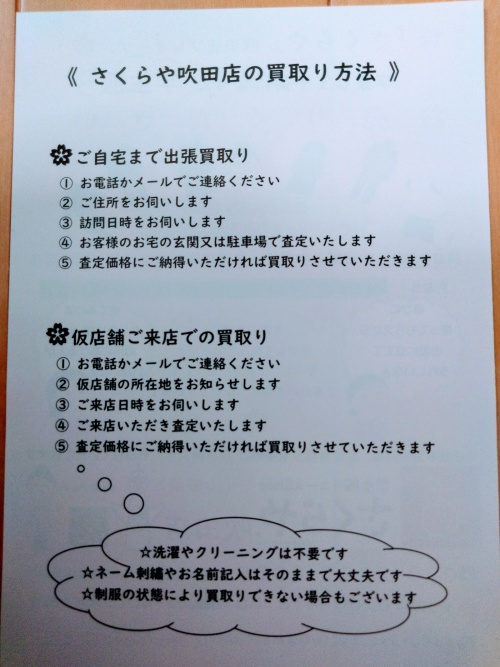 《 さくらや吹田店の買取り方法 》
ご自宅まで出張買取り
① お電話かメールでご連絡ください
② ご住所をお伺いします
③ 訪問日時をお伺いします
④ お客様のお宅の玄関又は駐車場で査定いたします
⑤ 査定価格にご納得いただければ買取りさせていただきます
仮店舗ご来店での買取り
① お電話かメールでご連絡ください
② 仮店舗の所在地をお知らせします
③ ご来店日時をお伺いします
④ ご来店いただき査定いたします
⑤ 査定価格にご納得いただければ買取りさせていただきます
☆洗濯やクリーニングは不要です
☆ネーム刺繍やお名前記入はそのままで大丈夫です
☆制服の状態により買取りできない場合もございます